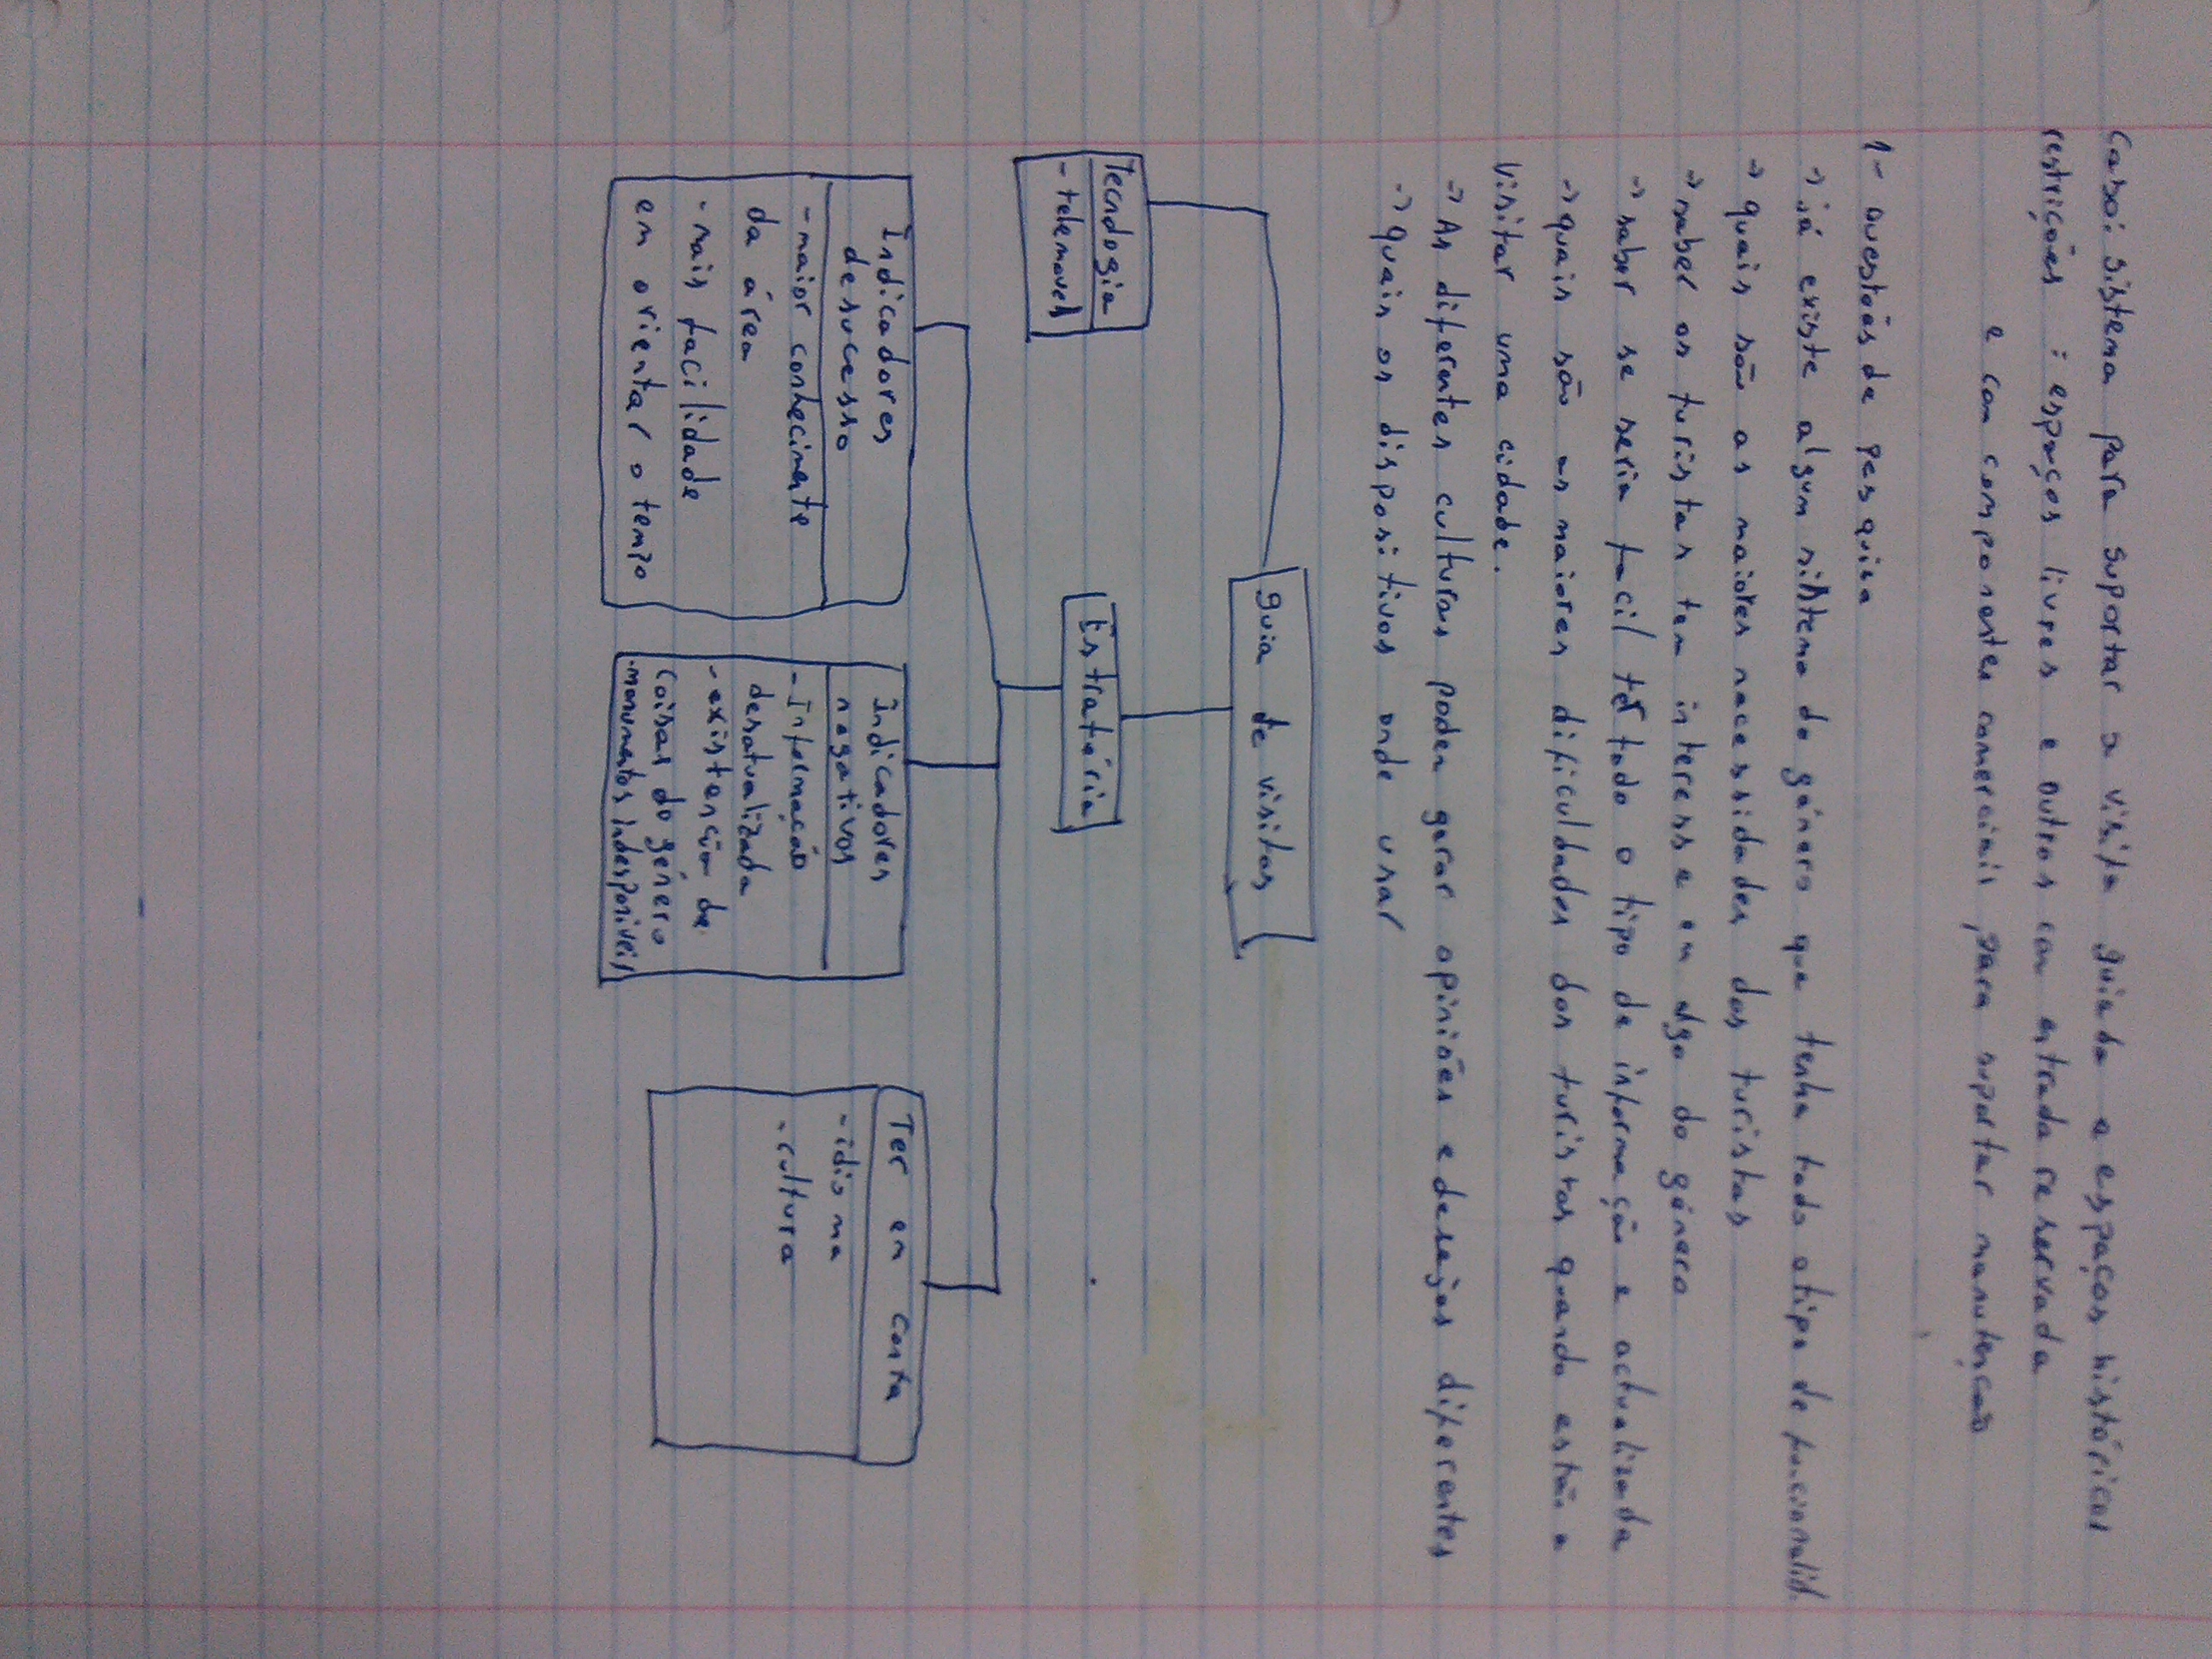 Caso: sistema para suportar a visita guiada a espaços históricos
restrições : espaços livres e outros com entrada reservada
e com componentes comerciais, para suportar manutenção
1- questões de pesquisa
→ já existe algum sistema do género que tenha todo o tipo de funcionalid.
→ quais são as maiores necessidades dos turistas
→ saber os turistas tem interesse em algo do género
→ saber se seria facil ter todo o tipo de informação e actualizada
→ quais são as maiores dificuldades dos turistas quando estão a
visitar uma cidade.
→ As diferentes culturas podem gerar opiniões e desejos diferentes
→ quais os dispositivos onde usar
guia de visitas
Tecnologia
- telemovel
Estratégia
Indicadores
de sucesso
- maior conhecimento
da área
- mais facilidade
em orientar o tempo
Indicadores
negativos
- Informação
desatualizada
- existência de
coisas do género
- monumentos indesponiveis
Ter em conta
- idioma
- cultura